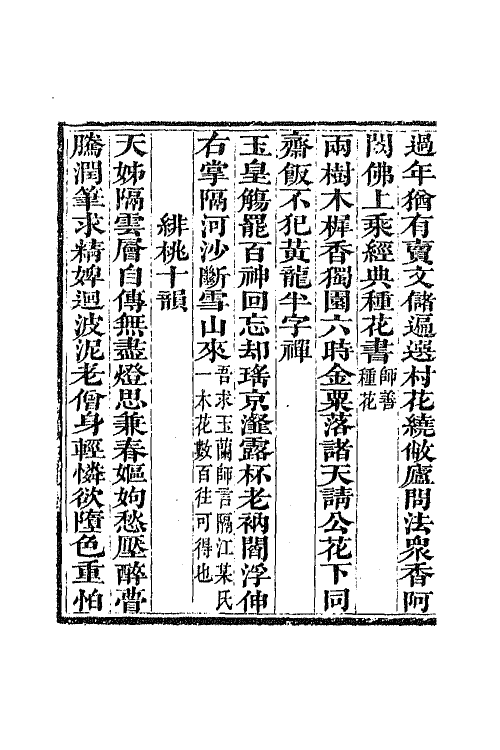 過年猶有賣文儲遍選村花繞做廬問法衆香阿
閦佛上乘經典種花書師善種花
兩樹木樨香獨園六時金粟落諸天請公花下同
齋飯不犯黃龍半字禪
玉皇觴罷百神回忘却瑤京瀣露杯老衲閻浮伸
右掌隔河沙斷雪山來吾求玉蘭師言隔江某氏一木花數百往可得也
緋桃十韻
天姊隔雲層自傳無盡燈思兼春嫗姁愁壓醉瞢
騰潤筆求精婢迴波泥老僧身輕憐欲墮色重怕